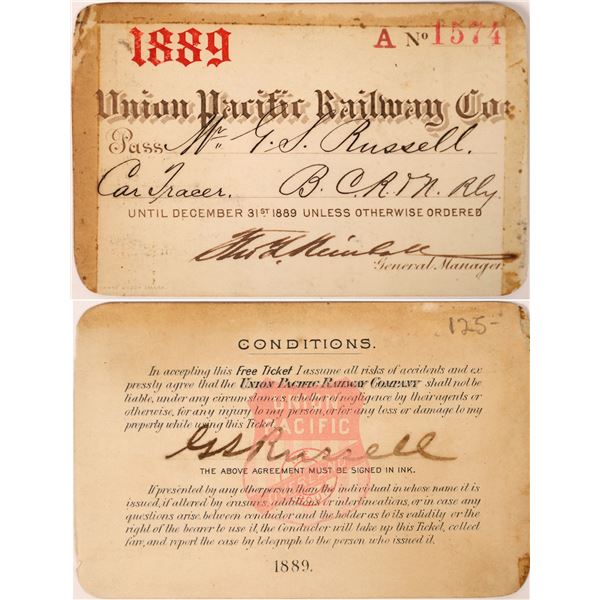 1889
A No 1574
Union Pacific Railway Co:
Pass Mr. G. S. Russell.
Car Tracer. B. C. R & N. Rly.
UNTIL DECEMBER 31ST 1889 UNLESS OTHERWISE ORDERED
Tho L Kimball
General Manager
125-
CONDITIONS.
In accepting this Free Ticket I assume all risks of accidents and ex
pressly agree that the UNION PACIFIC RAILWAY COMPANY shall not be
liable, under any circumstances, whether of negligence by their agents or
otherwise, for any injury to my person, or for any loss or damage to my
property while using this Ticket.
UNION
PACIFIC
GS Russell
THE ABOVE AGREEMENT MUST BE SIGNED IN INK.
If presented by any other person than the individual in whose name it is
issued, if altered by erasures, additions or interlineations, or in case any
questions arise between conductor and the holder as to its validity or the
right of the bearer to use it, the Conductor will take up this Ticket, collect
fare, and report the case by telegraph to the person who issued it.
1889.